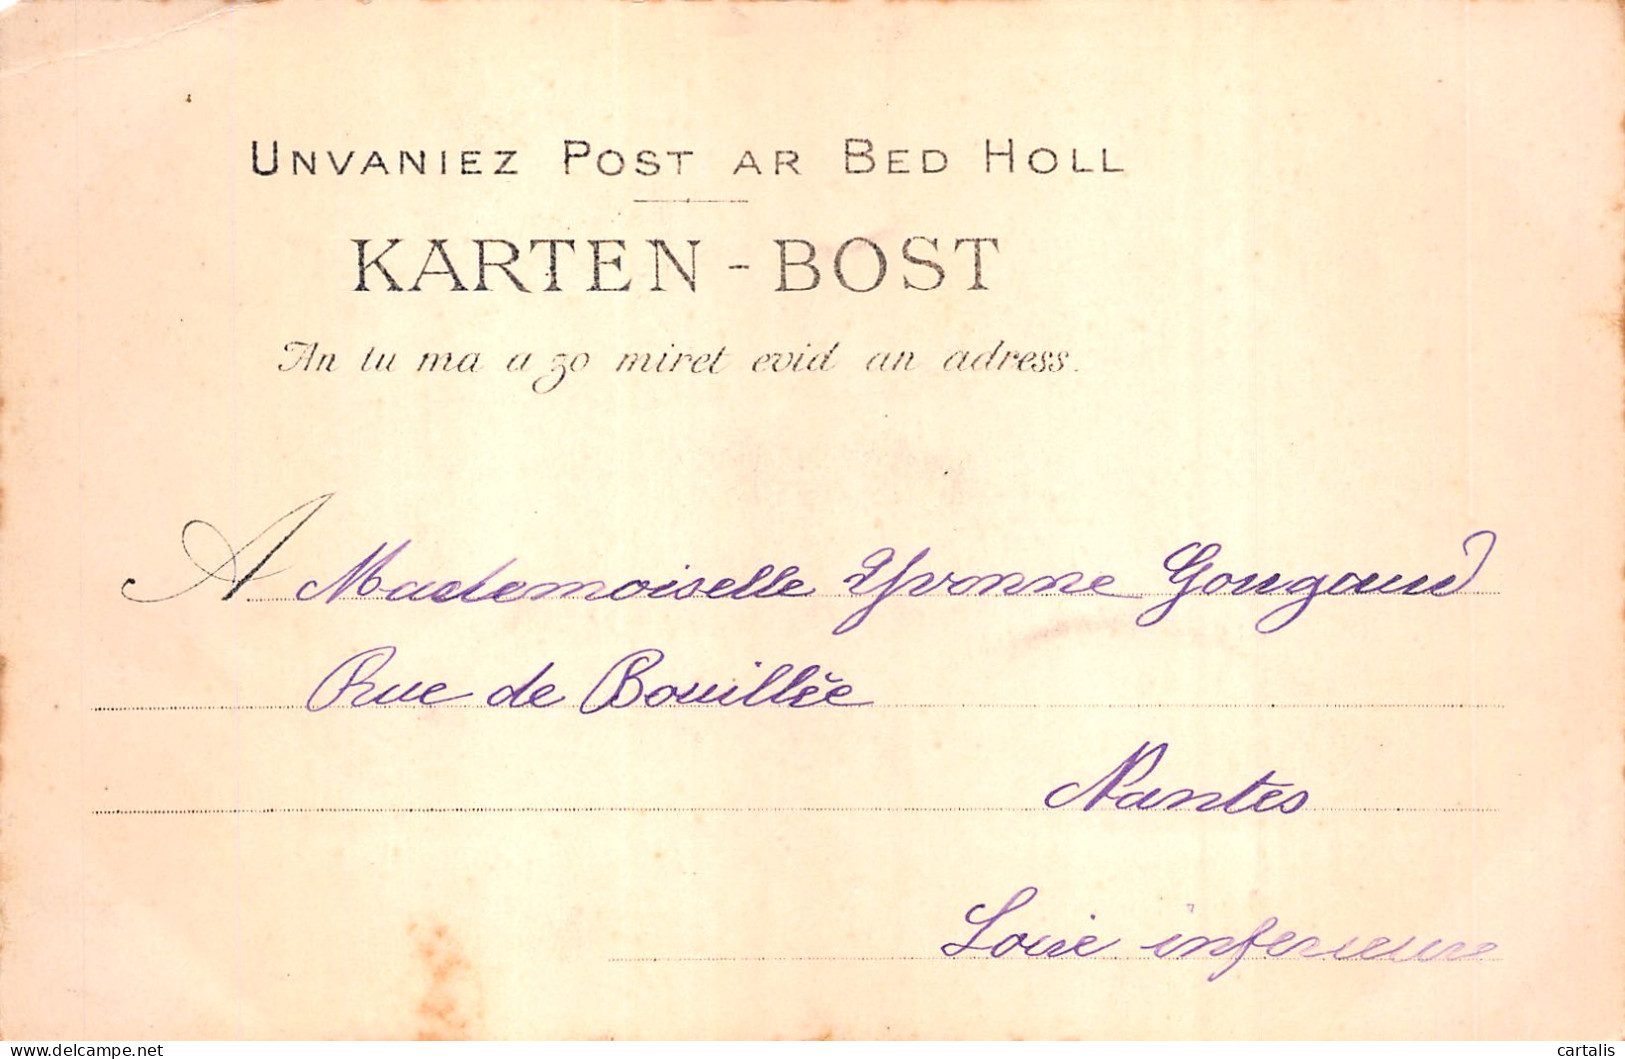 UNVANIEZ POST AR BED HOLL
KARTEN-BOST
An tu ma a zo miret evid an adress.
A Mademoiselle Yvonne Gougaud
Rue de Bouillée
Nantes
Loire inferieure
www.delcampe.net
cartalis